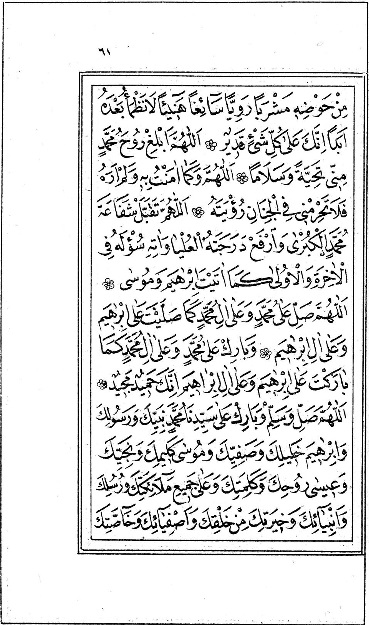 ٦١
مِنْ حَوْضِهٖ مَشْرَبًا رَوِيًّا سَآئِغًا هَنِيْٓئًا لَا نَظْمَأُ بَعْدَهٗ
اَبَدًا اِنَّكَ عَلٰى كُلِّ شَىْءٍ قَدِيْرٌ ۞ اَللّٰهُمَّ اَبْلِغْ رُوْحَ مُحَمَّدٍ
مِنِّىْ تَحِيَّةً وَّسَلَامًا ۞ اَللّٰهُمَّ وَكَمَا اٰمَنْتُ بِهٖ وَلَمْ اَرَهٗ
فَلَا تَحْرِمْنِىْ فِى الْجِنَانِ رُؤْيَتَهٗ ۞ اَللّٰهُمَّ تَقَبَّلْ شَفَاعَةَ
مُحَمَّدِ ِالْكُبْرٰى وَارْفَعْ دَرَجَتَهُ الْعُلْيَا وَاٰتِهٖ سُؤْلَهٗ فِى
الْاٰخِرَةِ وَالْاُوْلٰى كَمَا اٰتَيْتَ اِبْرٰهِيْمَ وَمُوْسٰى ۞
اَللّٰهُمَّ صَلِّ عَلٰى مُحَمَّدٍ وَّعَلٰى اٰلِ مُحَمَّدٍ كَمَا صَلَّيْتَ عَلٰى اِبْرٰهِيْمَ
وَعَلٰى اٰلِ اِبْرٰهِيْمَ ۞ وَبَارِكْ عَلٰى مُحَمَّدٍ وَّعَلٰى اٰلِ مُحَمَّدٍ كَمَا
بَارَكْتَ عَلٰى اِبْرٰهِيْمَ وَعَلٰى اٰلِ اِبْرَاهِيْمَ اِنَّكَ حَمِيْدٌ مَّجِيْدٌ ۞
اَللّٰهُمَّ صَلِّ وَسَلِّمْ وَبَارِكْ عَلٰى سَيِّدِنَا مُحَمَّدٍ نَّبِيِّكَ وَرَسُوْلِكَ
وَاِبْرٰهِيْمَ خَلِيْلِكَ وَصَفِيِّكَ وَمُوْسٰى كَلِيْمِكَ وَنَجِيِّكَ
وَعِيْسٰى رُوْحِكَ وَكَلِمَتِكَ وَعَلٰى جَمِيْعِ مَلٰٓئِكَتِكَ وَرُسُلِكَ
وَاَنْبِيَآئِكَ وَخِيَرَتِكَ مِنْ خَلْقِكَ وَاَصْفِيَآئِكَ وَخَآصَّتِكَ